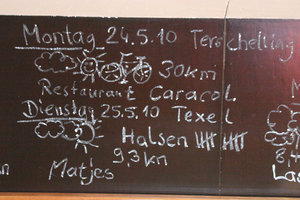 Montag 24.5.10 Terschelling
30km
Restaurant Caracol
Dienstag 25.5.10 Texel
Halsen
9,3kn
Matjes